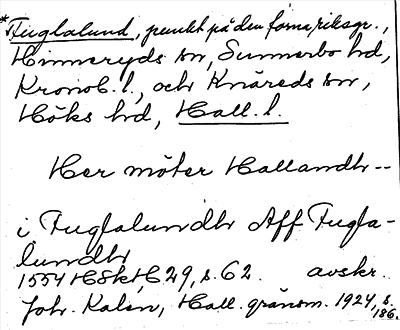 *Fuglalund, punkt på den forna riksgr.,
Hinneryds sn, Sunnerbo hd,
Kronob. l., och Knäreds sn,
Höks hd, Hall. l.
Her möter Hallandh --
i Fuglalundh Aff Fugla-
lundh
1554 HSkt H 29, s. 62. avskr.
Joh. Kalén, Hall. gränsm. 1924, s.
186.